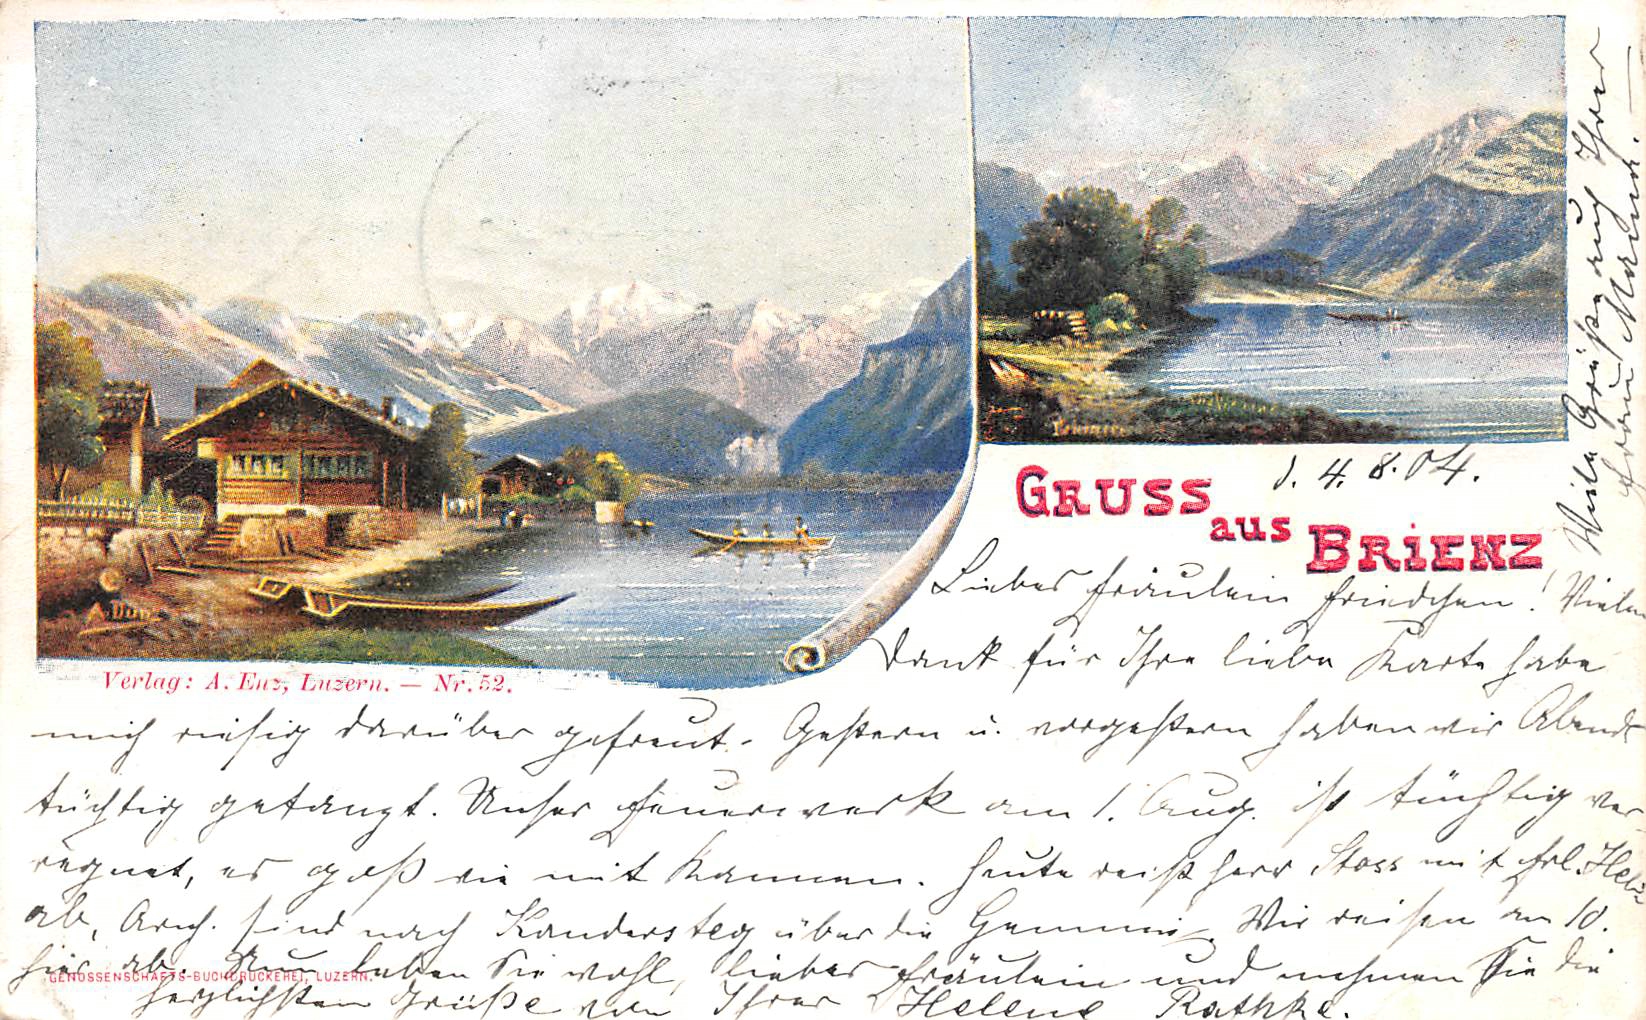 Gruss
aus
Brienz
d. 4. 8. 04.
Liebes Fräulein Friedchen! Vielen
Dank für Ihre liebe Karte habe
mich riesig darüber gefreut. Gestern u. vorgestern haben wir Abends
tüchtig getanzt. Unser Feuerwerk am 1. Aug. ist tüchtig ver-
regnet, es goß wie mit Kannen. Heute reist Herr Stoss mit Frl.
ab, sind nach Kandersteg über die Gemmi. Wir reisen am 10.
hier ab. Nun leben Sie wohl, liebes Fräulein und nehmen Sie die
herzlichsten Grüße von Ihrer Helene Rathke.
Viele Grüße auch Ihrer
Frau
Verlag: A. Enz, Luzern. — Nr. 52.
GENOSSENSCHAFTS-BUCHDRUCKEREI, LUZERN.